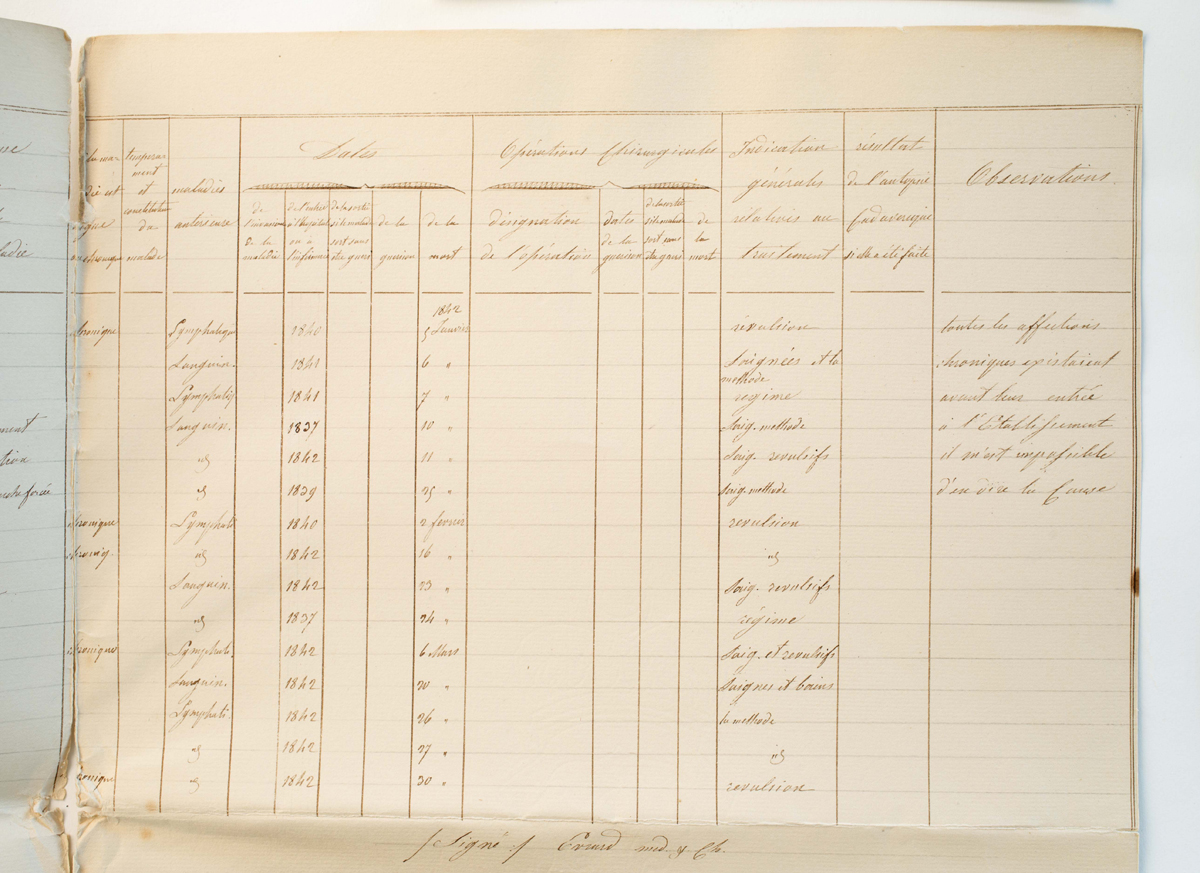 tempera- ment et constitution du malade
maladies anterieures
Dates
de l'invasion de la maladie
de l'entrée à l'hopital ou à l'infirmerie
de la sortie si le malade sort sans etre gueri
de la guerison
de la mort
Opérations Chirurgicales
désignation de l'opération
dates de la guerison
de la sortie si le malade sort sans etre gueri
de la mort
Indication générales relatives au traitement
résultat de l'autopsie Cadaverique si elle a été faite
Observations
1842
chronique Lymphatique 1840 5 Janvier révulsion toutes les affections
Sanguin. 1841 6 " Saignées et la methode chroniques existaient
Lymphatiq 1841 7 " régime avant leur entrée
Sanguin. 1837 10 " Saig. methode à l'Etablissement
" 1842 11 " Saig. revulsifs il m'est impossible
" 1839 25 " Saig. methode d'en dire la Cause
chronique Lymphati 1840 2 fevrier revulsion
chroniq. " 1842 16 " "
Sanguin. 1842 23 " Saig. revulsifs
" 1837 24 " régime
chronique Lymphati. 1842 6 Mars Saig. et revulsifs
Sanguin. 1842 20 " Saignes et bains
Lymphati. 1842 26 " la methode
" 1842 27 " "
chronique " 1842 30 " revulsion
/Signé/ Evrard med. & Ch.